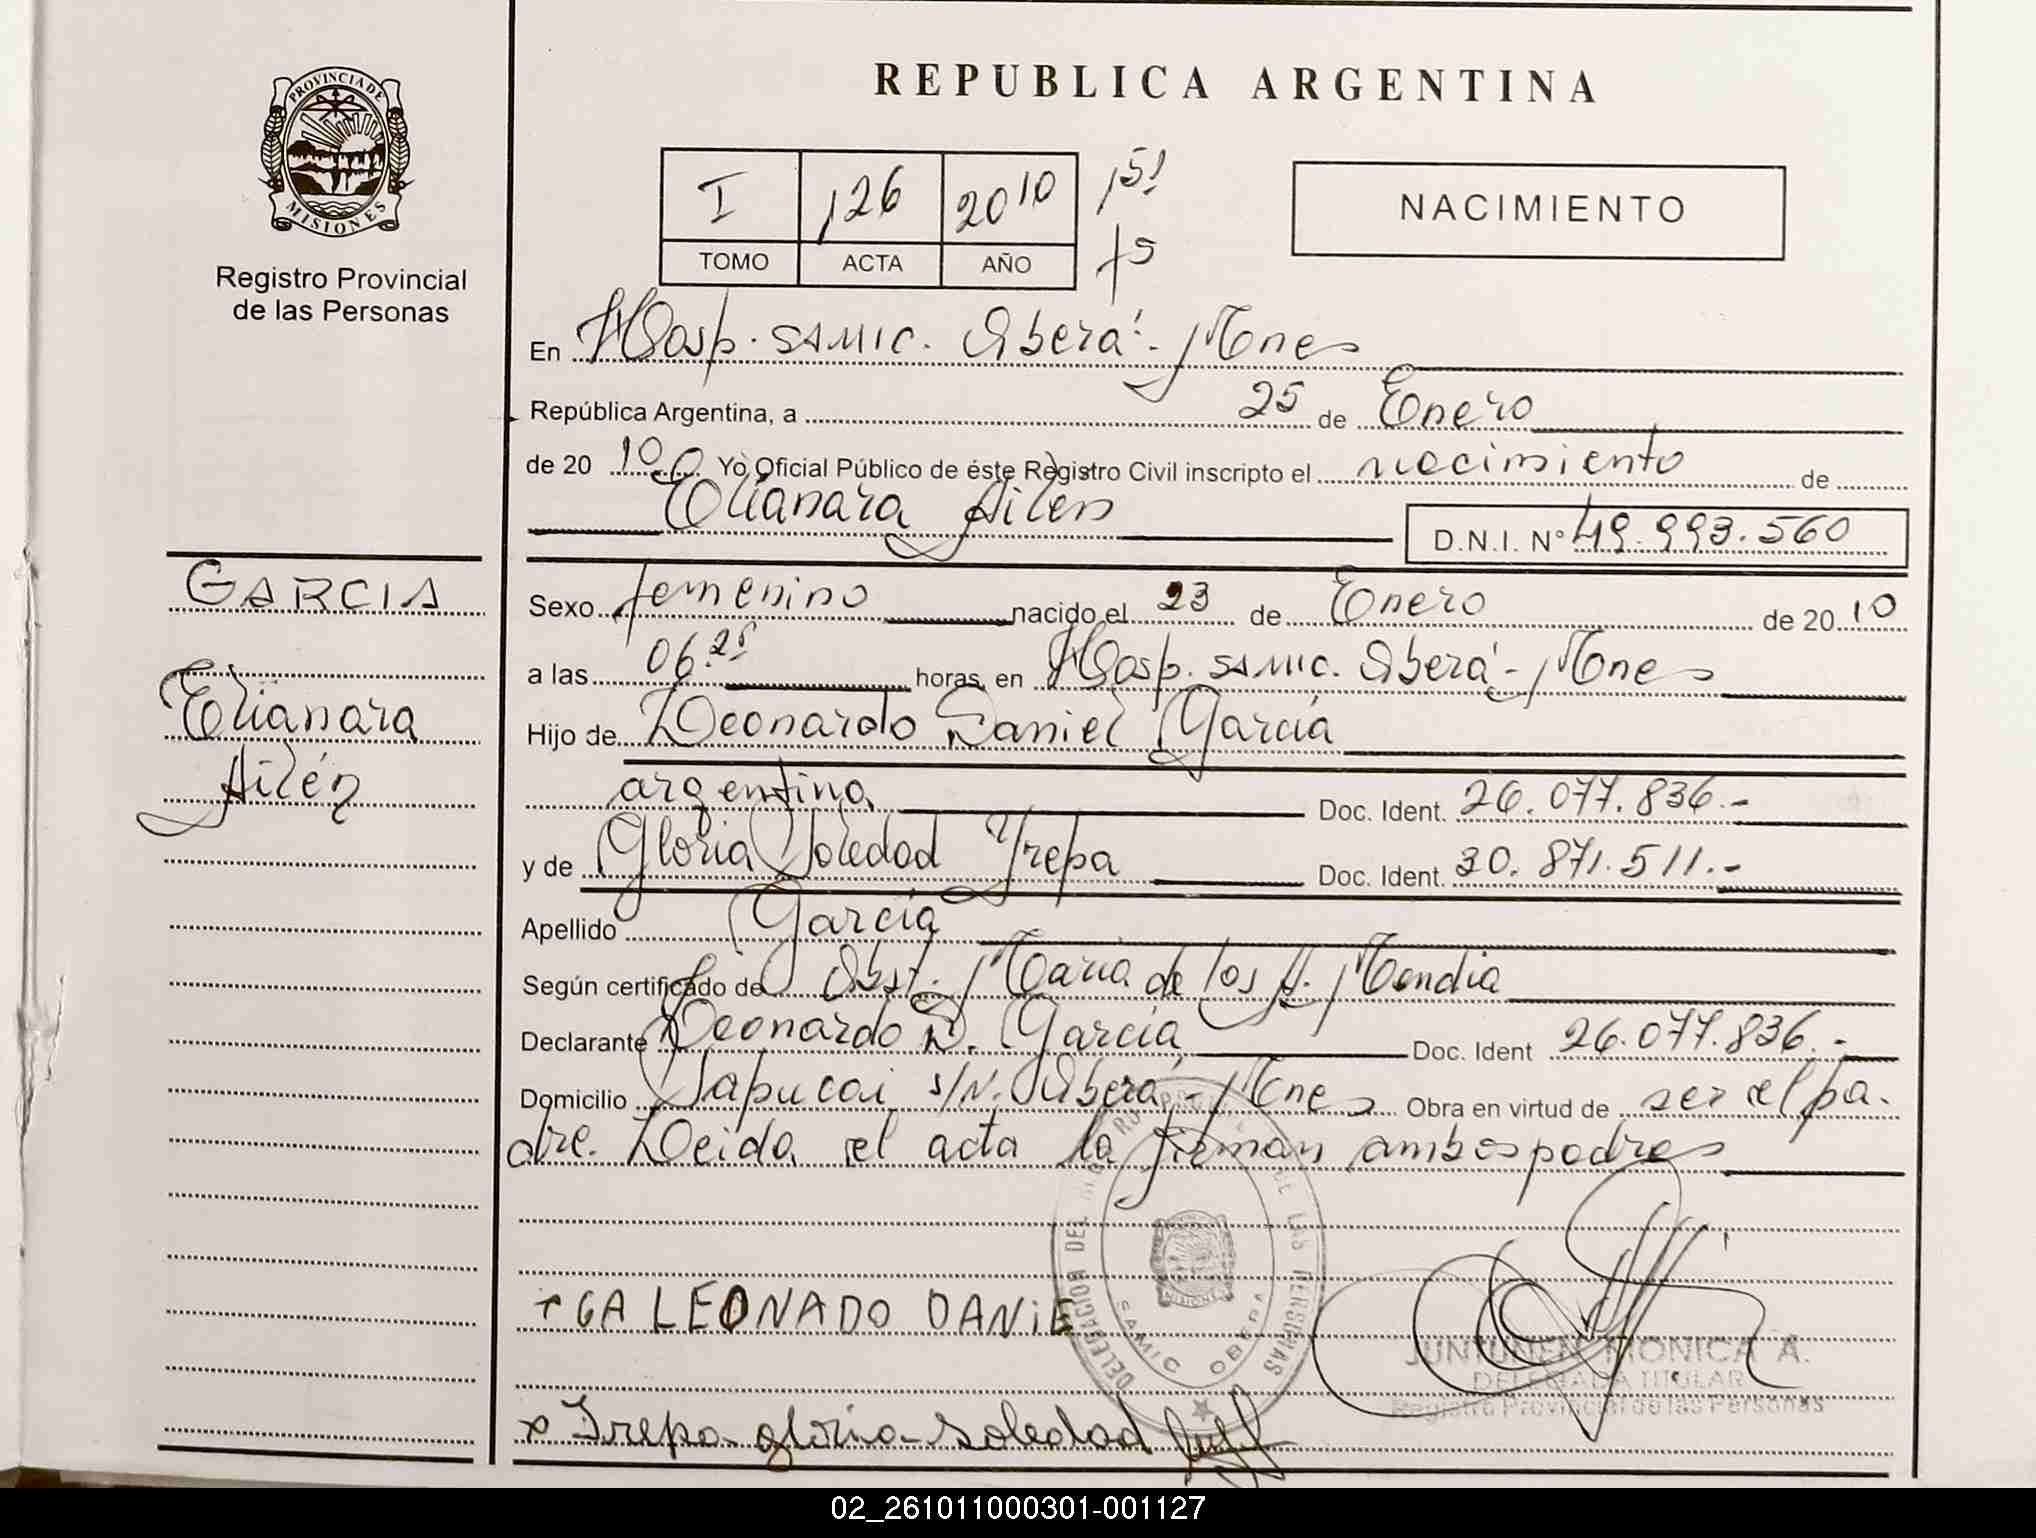 PROVINCIA DE
MISIONES
Registro Provincial
de las Personas
GARCIA
Elianara
Ailén
REPUBLICA ARGENTINA
I 126 2010 151
TOMO ACTA AÑO fs
NACIMIENTO
En Hosp. SAMIC. Oberá - Mnes
República Argentina, a 25 de Enero
de 20 10 Yo Oficial Público de éste Registro Civil inscripto el nacimiento de
Elianara Ailen D.N.I. N° 49.993.560
Sexo femenino nacido el 23 de Enero de 20 10
a las 06.25 horas, en Hosp. SAMIC. Oberá - Mnes
Hijo de Leonardo Daniel García
argentino Doc. Ident. 26.077.836.-
y de Gloria Soledad Trepa Doc. Ident. 30.871.511.-
Apellido García
Según certificado de Obst. María de los A. Mendia
Declarante Leonardo D. García Doc. Ident 26.077.836.-
Domicilio Sapucai s/N. Oberá - Mnes Obra en virtud de ser el pa-
dre. Leida el acta la firman ambos padres
GA LEONADO DANIE
x Trepa gloria soledad
DELEGACION DEL REG. PROVINCIAL DE LAS PERSONAS
SAMIC OBERA
MISIONES
JUNTUNEN MONICA A.
DELEGADA TITULAR
Registro Provincial de las Personas
02_261011000301-001127